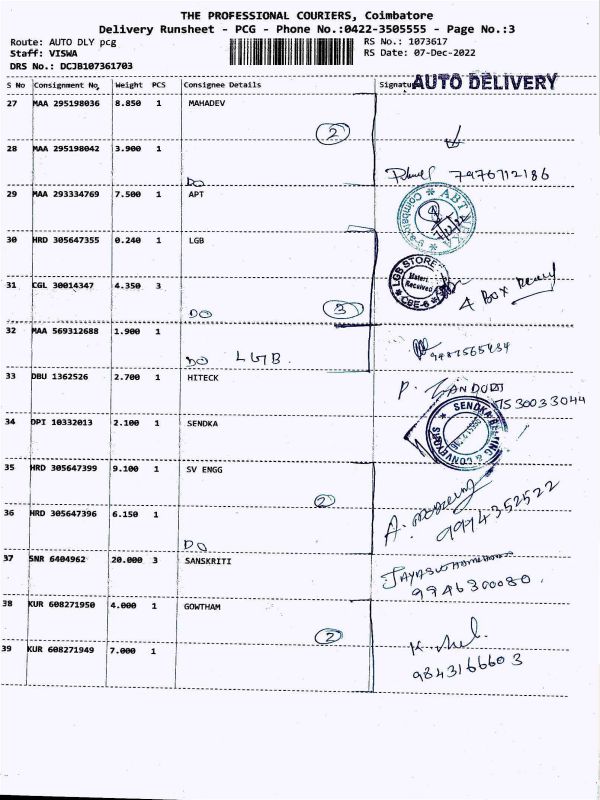 THE PROFESSIONAL COURIERS, Coimbatore
Delivery Runsheet - PCG - Phone No.:0422-3505555 - Page No.:3
Route: AUTO DLY pcg
RS No.: 1073617
Staff: VISWA
RS Date: 07-Dec-2022
DRS No.: DCJB107361703
S No Consignment No, Weight PCS Consignee Details Signatu AUTO DELIVERY
27 MAA 295198036 8.850 1 MAHADEV
2
28 MAA 295198042 3.900 1
DO 7976712186
29 MAA 293334769 7.500 1 APT
ABT
30 HRD 305647355 0.240 1 LGB
LGB STORE
Received
CBE-6
31 CGL 30014347 4.350 3
DO 3 4 BOX
32 MAA 569312688 1.900 1
DO LGB
33 DBU 1362526 2.700 1 HITECK
P.
7530033044
34 DPI 10332013 2.100 1 SENDKA
SENDKA BELTING & CONVEYORS
35 HRD 305647399 9.100 1 SV ENGG
2
9974352522
36 HRD 305647396 6.150 1
DO
37 SNR 6404962 20.000 3 SANSKRITI
9946300080.
38 KUR 608271950 4.000 1 GOWTHAM
2
39 KUR 608271949 7.000 1
9843166603